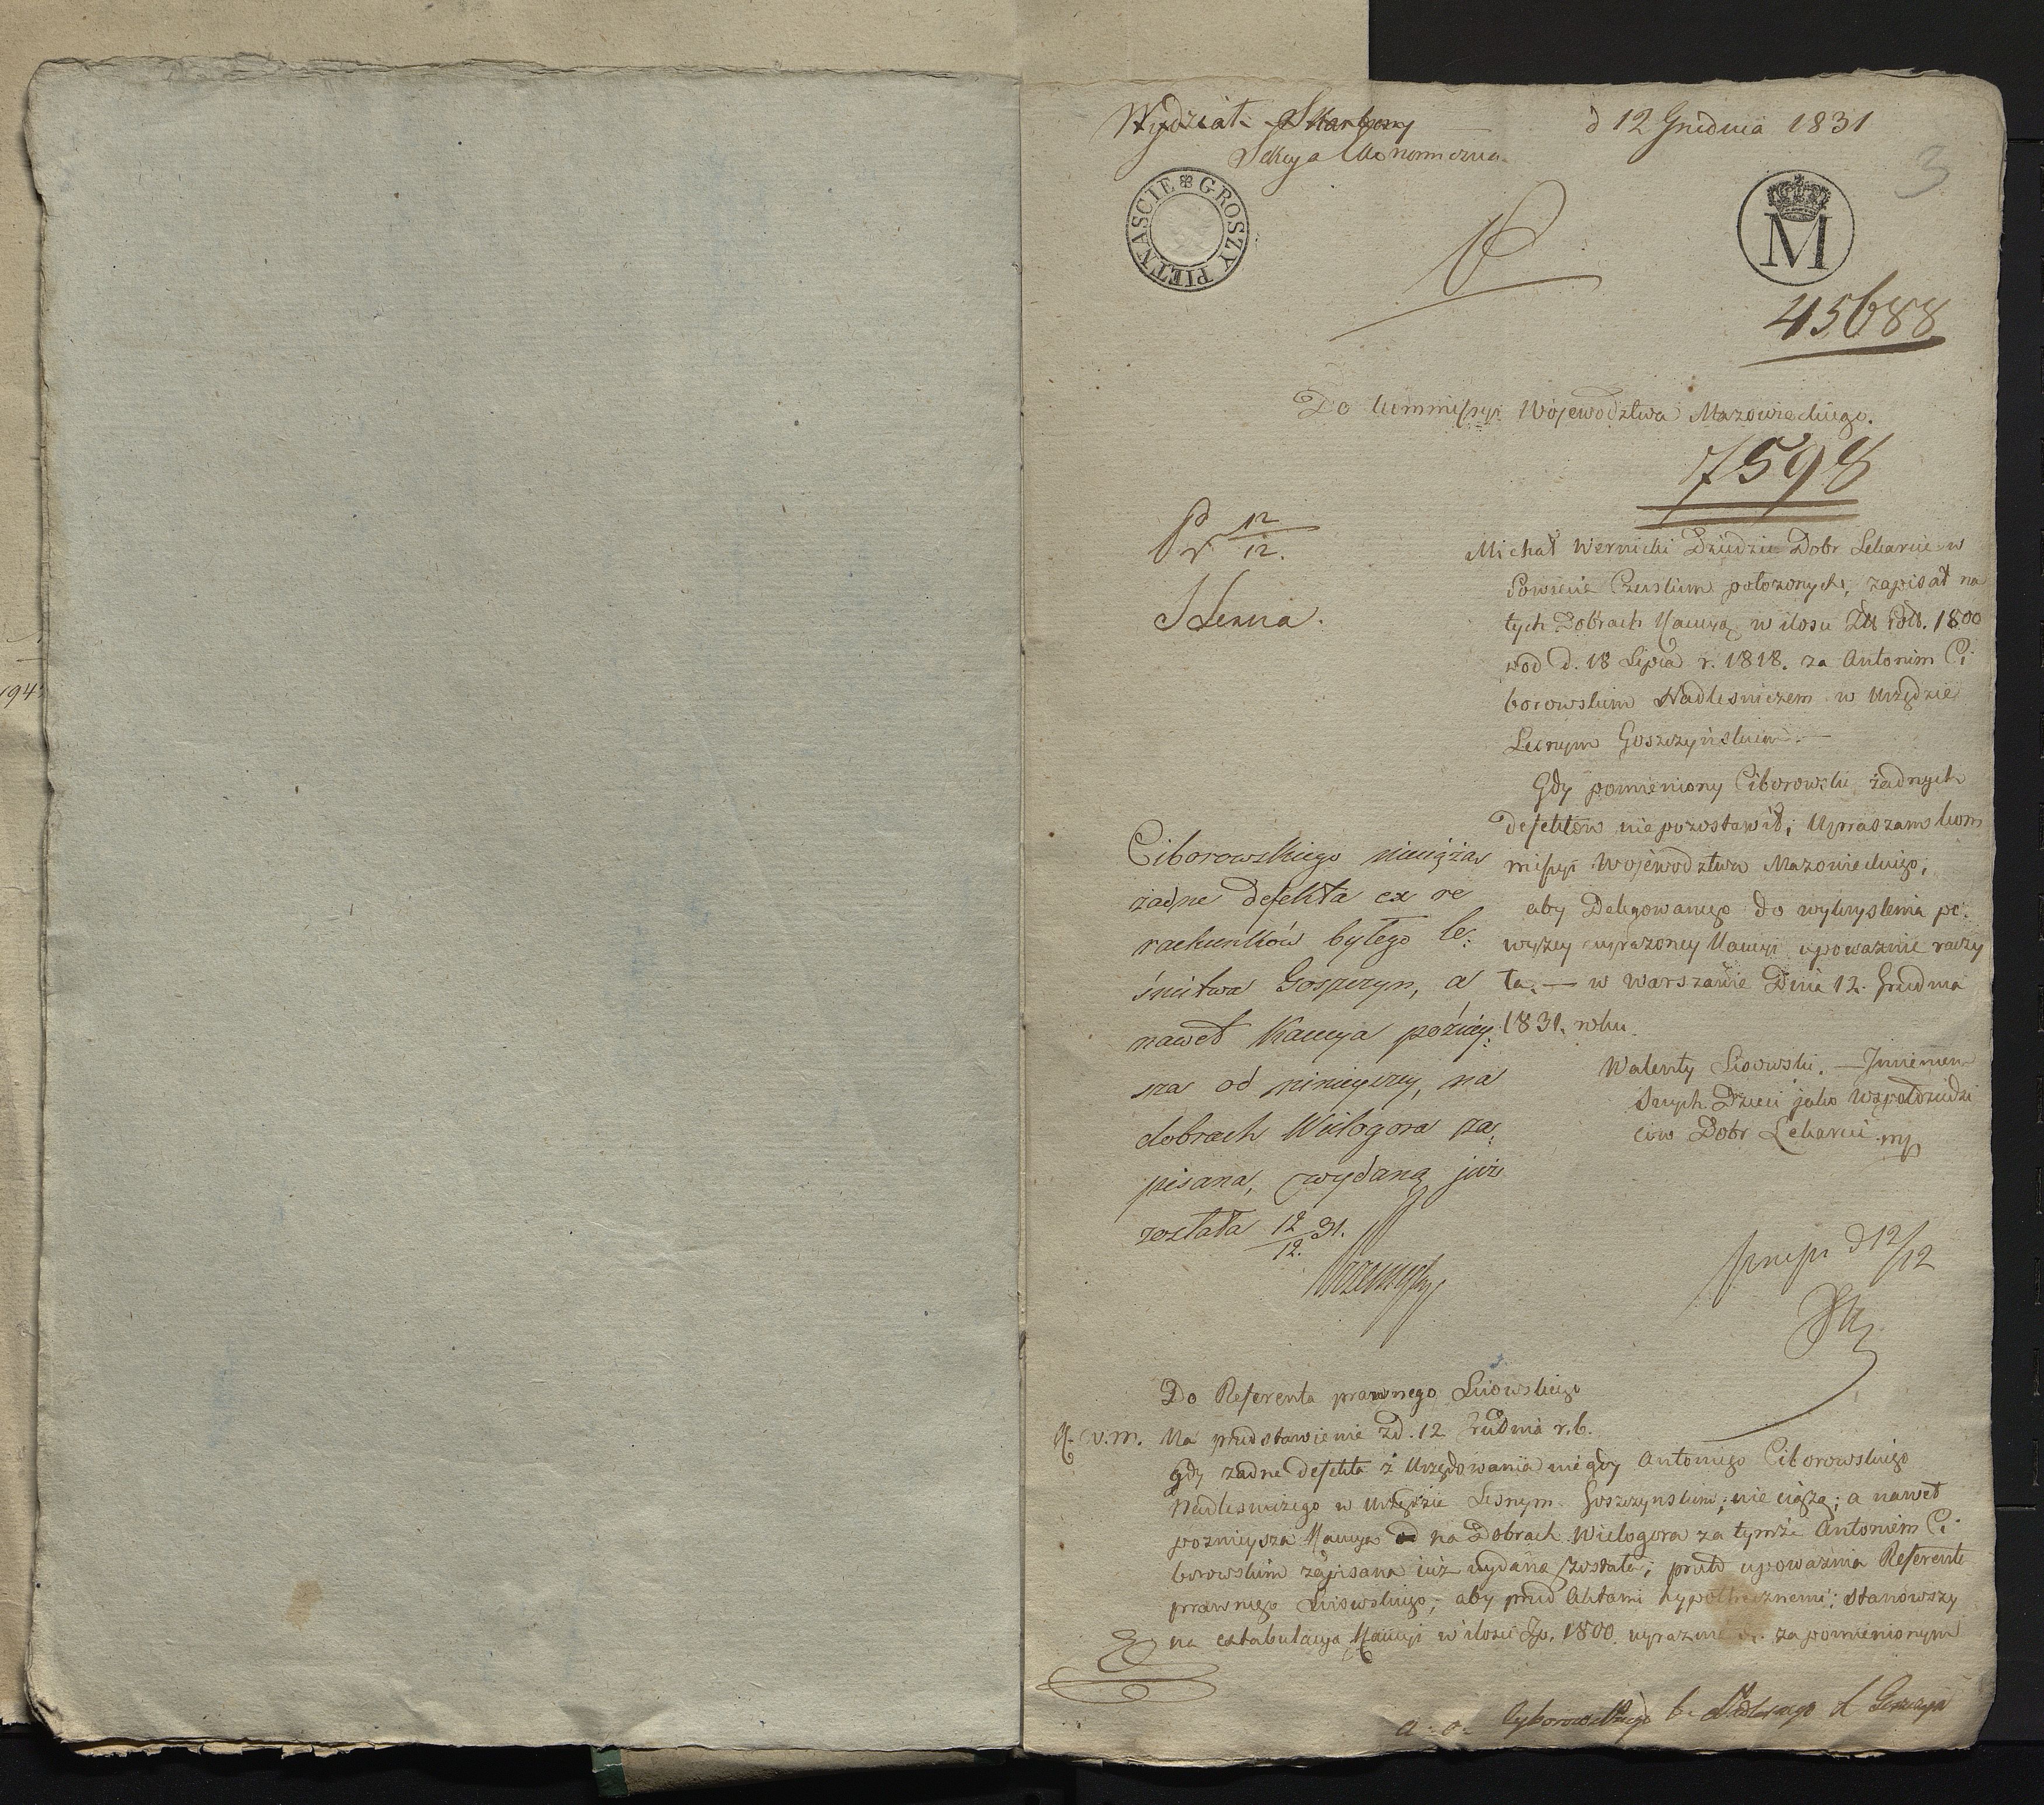 Wydział Skarbowy
d 12 Grudnia 1831
Sekcya Ekonomiczna
3
GROSZY PIETNASCIE
M
45688
Do Kommissyi Wojewodztwa Mazowieckiego.
7598
Pr 12/12.
Michał Wernicki Dziedzic Dobr Lekarcic w
Powiecie Czerskim położonych, zapisał na
tych Dobrach Kaucyą w ilosci Złt Pol. 1800
pod d. 18 Lipca r. 1818. za Antonim Ci
borowskim Nadlesniczem w Urzędzie
Lesnym Goszczyńskiem.—
Gdy pomieniony Ciborowski żadnych
defektow niepozostawił; Upraszam Kom
missyi Wojewodztwa Mazowieckiego,
aby Delegowanego do wykryslenia po:
wyższey wyrażoney Kaucyi upoważnić raczy
ła.— w Warszawie Dnia 12. Grudnia
1831. roku
Walenty Lisowski.—Imieniem
Swych Dzieci jako Wspołdziedzi
cow Dobr Lekarcic mp
Ciborowskiego nieciążą
żadne defekta ex re
rachunków byłego le:
śnictwa Goszczyn, a
nawet Kaucya póżniey:
sza od ninieyszey, na
dobrach Wielogora za:
pisana, wydaną już
została 12/12. 31.
d 12/12
Do Referenta prawnego Lisowskiego
K. v. m. Na przedstawienie z d. 12 Grudnia r. b.
gdy zadne defekta z Urzędowania niegdy Antoniego Ciborowskiego
Nadlesniczego w Urzędzie Lesnym Goszczynskim, nie ciążą; a nawet
poznieysza Kaucya na Dobrach Wielogora za tymże Antonim Ci
borowskim zapisana iuż wydaną została; przeto upoważnia Referenta
prawnego Lisowskiego, aby przed Aktami hypothecznemi stanowszy
na extabulacyą Kaucyi w ilosci Zp. 1800 za pomienionym
a. o. Cyborowskiego b. Goszczyn